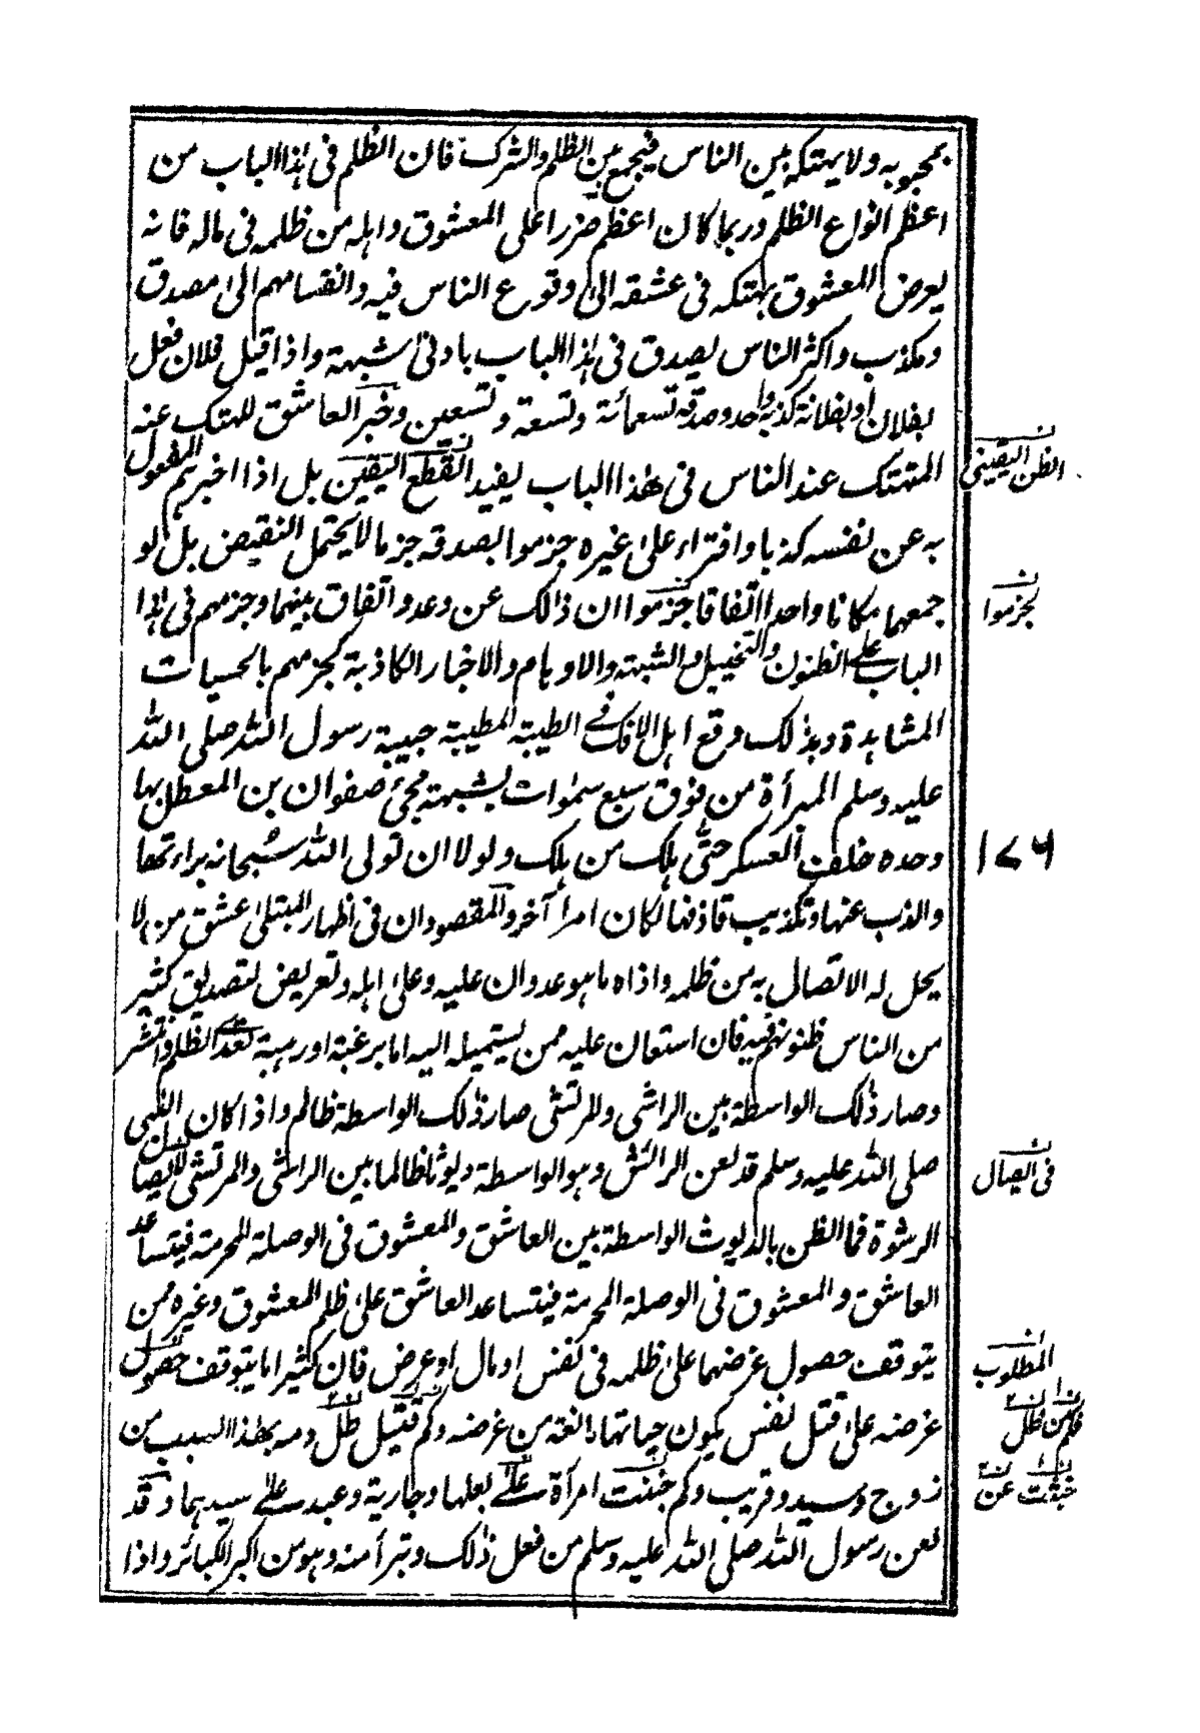 بمحبوبه ولا يهتكه بين الناس فيجمع بين الظلم والشرك فان الظلم فى هذا الباب من
اعظم انواع الظلم وربما كان اعظم ضررا على المعشوق واهله من ظلمه فى ماله فانه
يعرض المعشوق بهتكه فى عشقه الى وقوع الناس فيه وانقسامهم الى مصدق
ومكذب واكثر الناس يصدق فى هذا الباب بادنى شبهة واذا قيل فلان فعل
بفلان او بفلانة كذبه واحد وصدقه تسعمائة وتسعة وتسعين وخبر العاشق المهتك عنه
المتهتك عند الناس فى هذا الباب يفيد القطع اليقين بل اذا اخبرهم المفعول
الظن اليقينى
به عن نفسه كذبا وافتراء على غيره جزموا بصدقه جزما لا يحتمل النقيض بل لو
جمعهما مكانا واحدا اتفاقا جزموا ان ذالك عن وعد واتفاق بينهما وجزمهم فى هذا
لجزموا
الباب على الظنون والتخييل والشبة والاوهام والاخبار الكاذبة كجزمهم بالحسيات
المشاهدة وبذلك وقع اهل الافك فى الطيبة المطيبة حبيبة رسول الله صلى الله
عليه وسلم المبرأة من فوق سبع سموات بشبهة مجئ صفوان بن المعطل بها
وحده خلف العسكر حتى هلك من هلك ولولا ان تولى الله سبحانه براءتها
۱۷۶
والذب عنها وتكذيب قاذفها لكان امرا آخر والمقصود ان فى اظهار المبتلى عشق من لا
يحل له الاتصال به من ظلمه واذاه ما هو عدوان عليه وعلى اهله وتعريض لتصديق كثير
من الناس ظنونهم فيه فان استعان عليه ممن يستميله اليه اما برغبة او رهبة تعدى الظلم وانتشر
وصار ذلك الواسطة بين الراشى والمرتشى صار ذلك الواسطة ظالم واذا كان النبى
صلى الله عليه وسلم قد لعن الرائش وهو الواسطة ديوثا ظالما بين الراشى والمرتشى لايصال
فى ايصال
الرشوة فما الظن بالديوث الواسطة بين العاشق والمعشوق فى الوصلة المحرمة فيتساعد
العاشق والمعشوق فى الوصلة المحرمة فيتساعد العاشق على ظلم المعشوق وغيره ممن
يتوقف حصول غرضهما على ظلمه فى نفس او مال او عرض فان كثيرا ما يتوقف حصول
المطلوب
غرضه على قتل نفس يكون حياتها مانعة من غرضه وكم قتيل طل دمه بهذا السبب من
زوج وسيد وقريب وكم خبثت امرأة على بعلها وجارية وعبد على سيدهما وقد
خبثت عن
لعن رسول الله صلى الله عليه وسلم من فعل ذلك وتبرأ منه وهو من اكبر الكبائر واذا